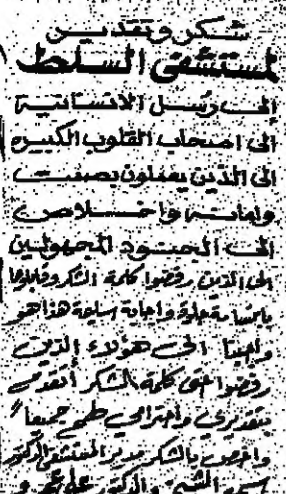 شكر وتقدير
لمستشفى السلط
إلى رسل الانسانية
الى اصحاب القلوب الكبيرة
الى الذين يعملون بصمت
وامانة واخلاص
الى الجنود المجهولين
الى الذين رفضوا كلمة الشكر وقابلوها
بابتسامة حلوة واجابة سليمة هذا هو
واجبنا الى هؤلاء الذين
رفضوا حتى كلمة الشكر أتقدم
بتقديري واحترامي لهم جميعا
واخص بالشكر مدير المستشفى الدكتور
والدكتور علي